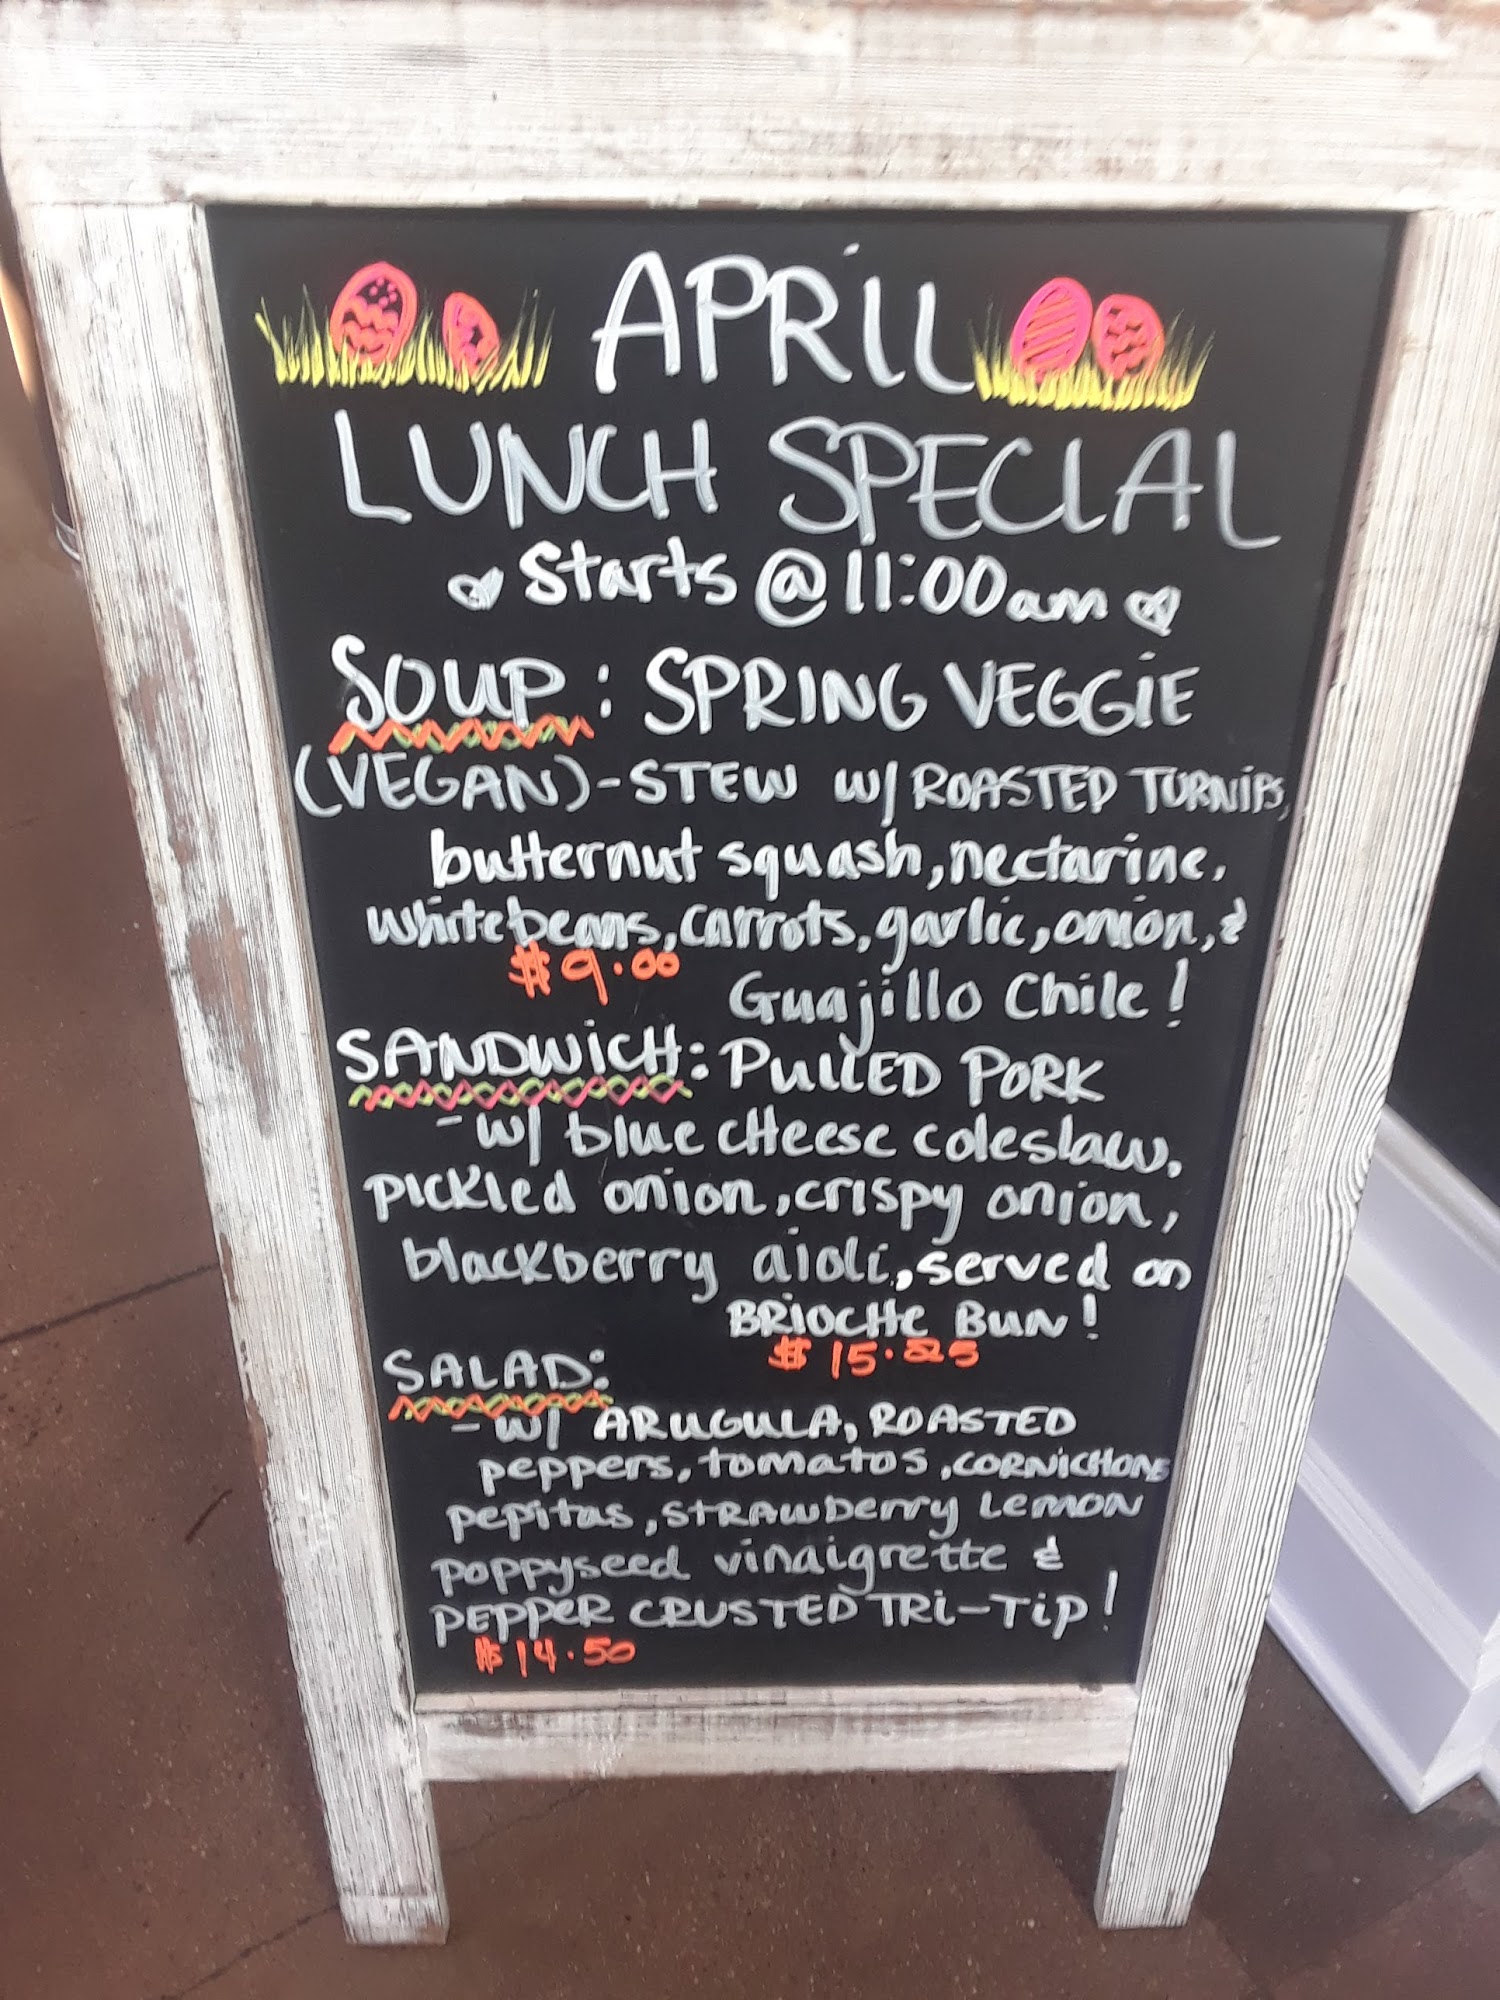 APRiL
LUNCH SPECIAL
Starts @ 11:00am
SOUP: SPRING VEGGiE
(VEGAN)-STEW w/ ROASTED TURNIPS,
butternut squash, nectarine,
white beans, carrots, garlic, onion, &
$9.00
Guajillo Chile!
SANDWiCH: PULLED PORK
- w/ blue cHeese coleslaw,
pickled onion, crispy onion,
blackberry aioli, served on
BRiOCHe BUN!
$15.25
SALAD:
- w/ ARUGULA, ROASTED
peppers, tomatos, CORNiCHONS
pepitas, STRAWberry Lemon
poppyseed vinaigrette &
PEPPeR CRUSTED TRi-Tip!
$14.50